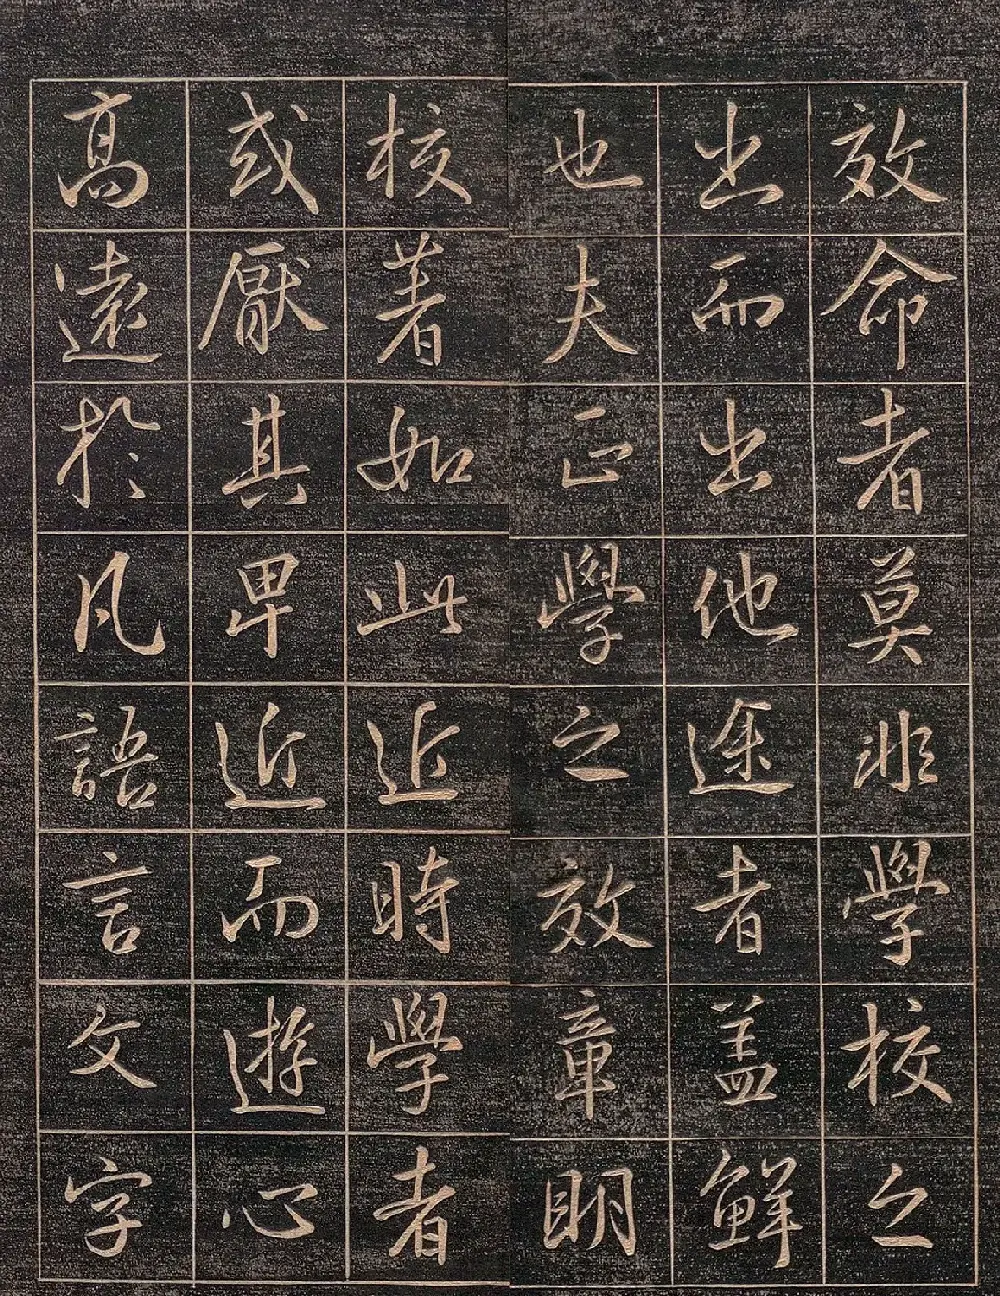 效命者莫非學校之
出而出他途者盖鮮
也夫正學之效章明
核著如此近時學者
或厭其卑近而遊心
高遠於凡語言文字